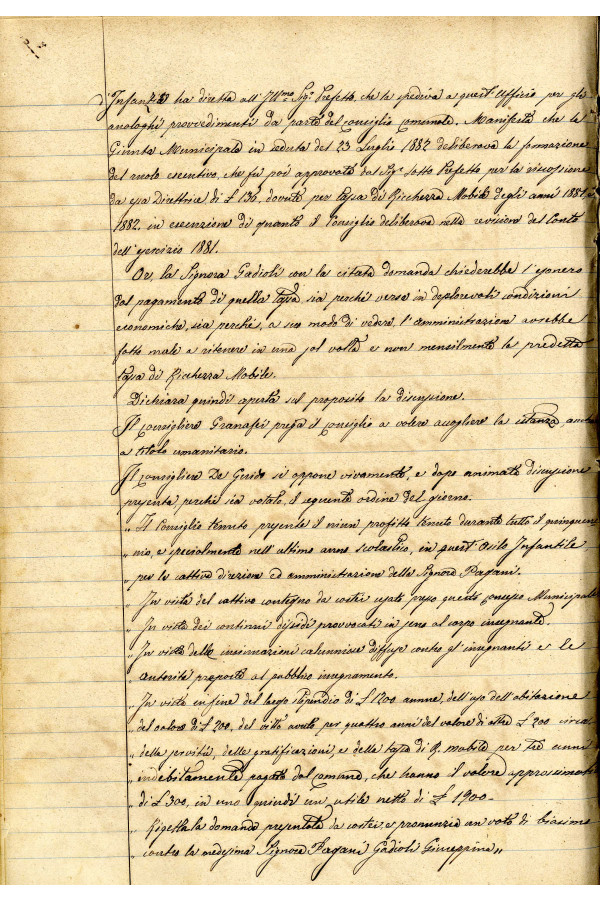 d'Infanzia ha diretta all'Ill.mo Sig.r Prefetto, che la spediva a quest'Ufficio per gli
analoghi provvedimenti da parte del Consiglio Comunale. Manifesta che la
Giunta Municipale in seduta del 23 Luglio 1882 deliberava la formazione
del ruolo esecutivo, che fu poi approvato dal Sig.r Sotto Prefetto per la riscossione
da essa direttrice di £ 130, dovute per tassa di Ricchezza Mobile degli anni 1881 e
1882, in esecuzione di quanto il Consiglio deliberava nella revisione del Conto
dell'esercizio 1881.
Or, la Signora Gadioli con la citata domanda chiederebbe l'esonero
dal pagamento di quella tassa, sia perché versa in deplorevoli condizioni
economiche, sia perché, a suo modo di vedere, l'amministrazione avrebbe
fatto male a ritenere in una sol volta e non mensilmente la predetta
tassa di Ricchezza Mobile.
Dichiara quindi aperta sul proposito la discussione.
Il Consigliere Granafei prega il Consiglio a volere accogliere la istanza, anche
a titolo umanitario.
Il Consigliere De Guido si oppone vivamente, e dopo animata discussione
presenta, perché sia votato, il seguente ordine del giorno.
„ Il Consiglio tenuto presente il niun profitto tenuto durante tutto il quinquen
„ nio, e specialmente nell'ultimo anno scolastico, in quest'Asilo Infantile
„ per la cattiva direzione ed amministrazione della Signora Pagani.
„ In vista del cattivo contegno da costei usato presso questo Consesso Municipale
„ In vista dei continui dissidi provocati in seno al corpo insegnante.
„ In vista delle insinuazioni calunniose diffuse contro gl'insegnanti e le
„ autorità preposte al pubblico insegnamento.
„ In vista in fine del largo stipendio di £ 1200 annue, dell'uso dell'abitazione
„ del valore di £ 200, del vitto avuto per quattro anni del valore di altre £ 200 circa,
„ delle gratificazioni, e della tassa di R. mobile per tre anni
„ indebitamente pagata dal Comune, che hanno il valore approssimativo
„ di £ 300, in uno quindi un utile netto di £ 1900-
„ Rigetta la domanda presentata da costei, e pronunzia un voto di biasimo
„ contro la medesima Signora Pagani Gadioli Giuseppina „